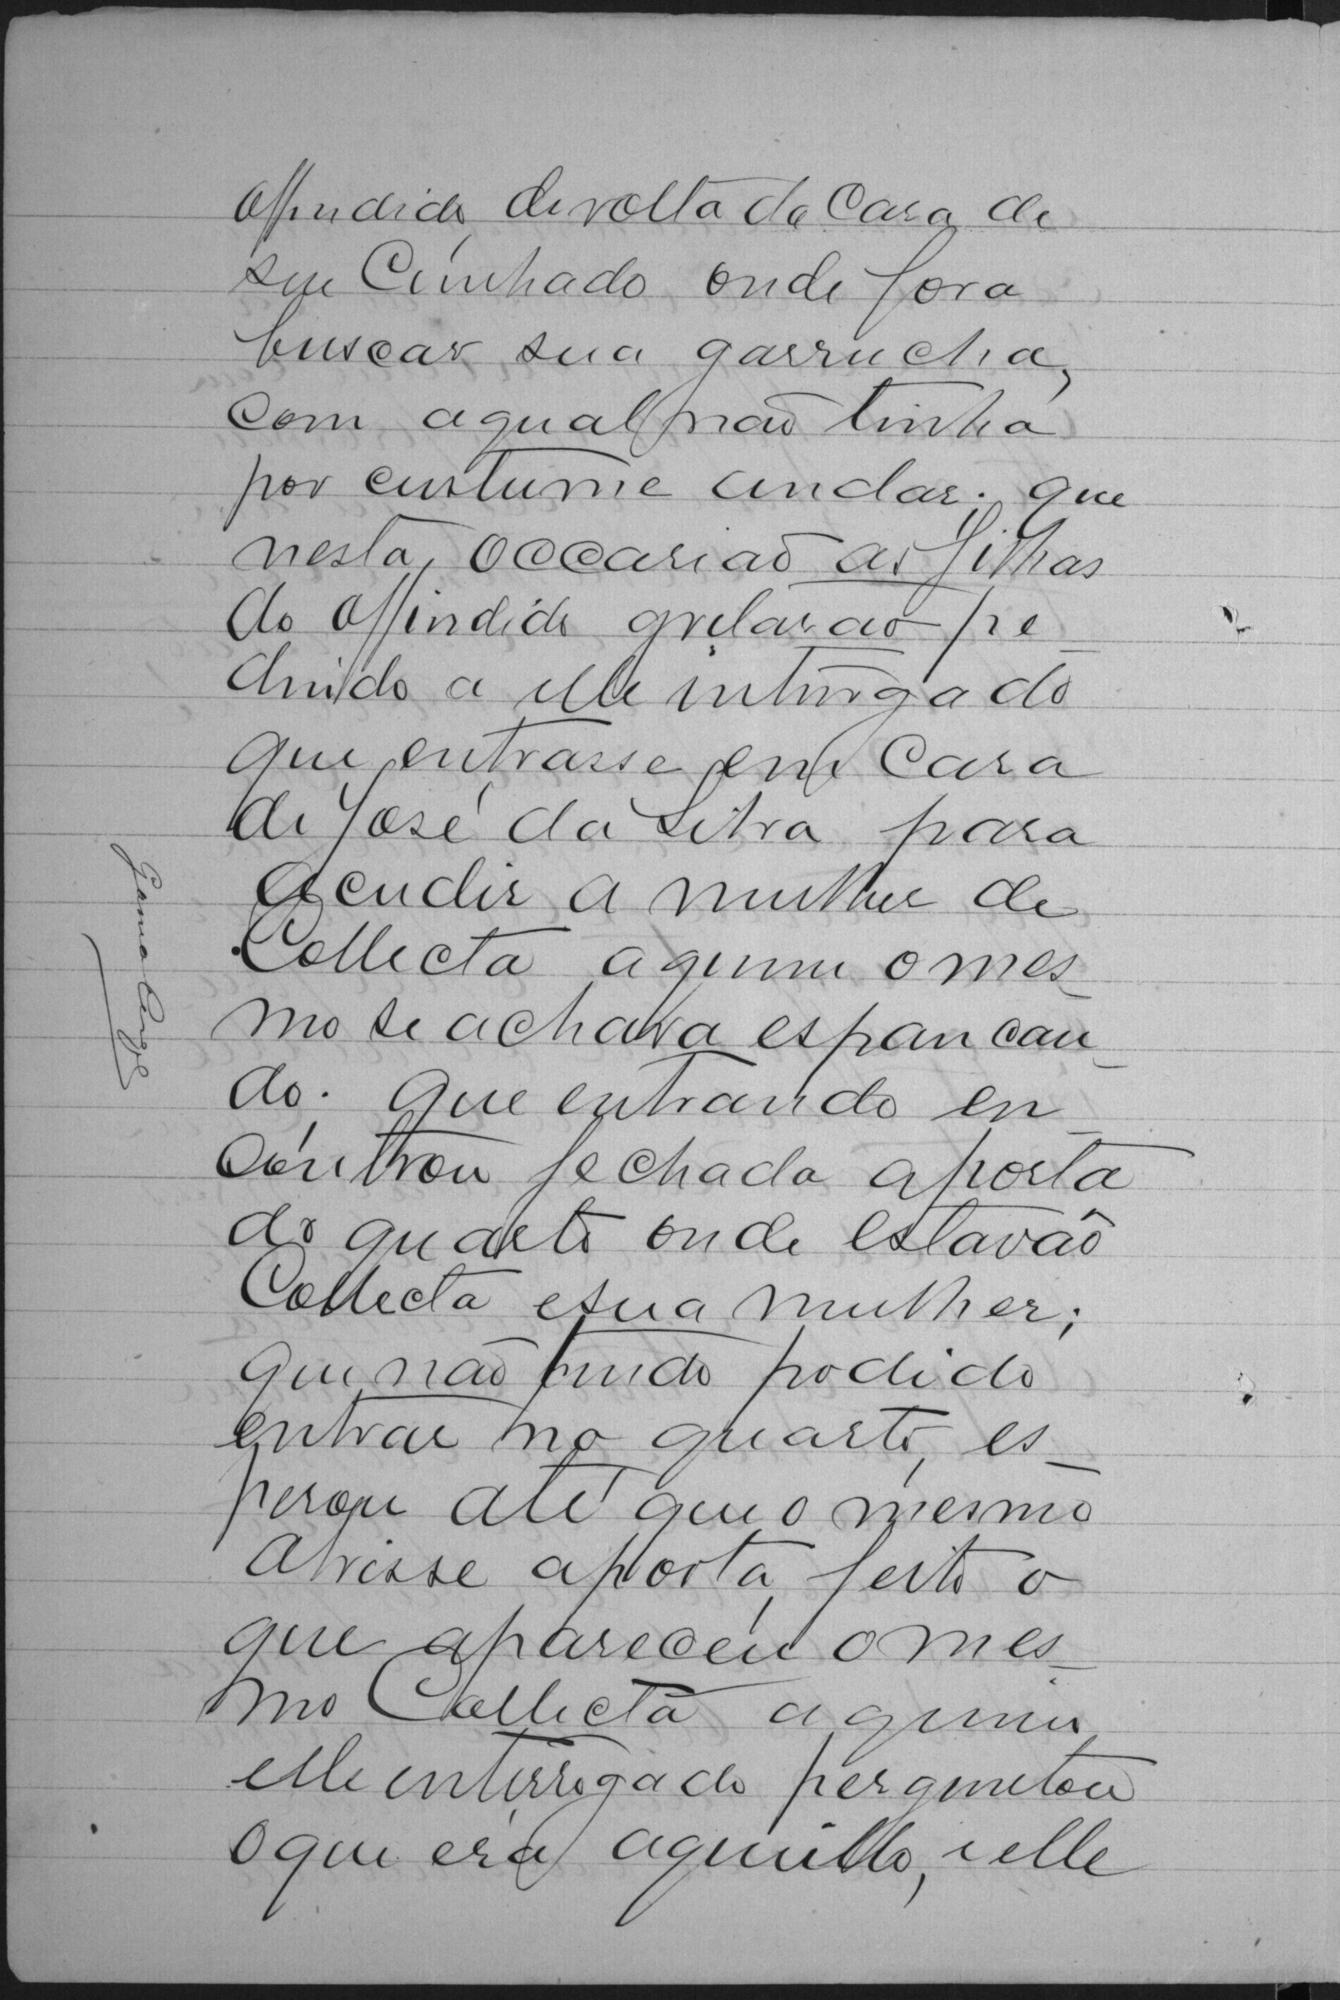 offendido, de volta da Casa de
seu Cunhado onde fora
buscar sua garrucha,
com a qual não tinha
por custume andar; que
nesta occasião as filhas
do offendido gritarão pe-
dindo a elle interrogado
que entrasse em casa
de José da Silva para
acudir a mulher de
Collecta a quem o mes-
mo se achava espancan-
do; que entrando en-
controu fechada a porta
do quarto onde estavão
Collecta e sua mulher;
que não tendo podido
entrar no quarto, es-
perou até que o mesmo
abrisse a porta, feito o
que apareceu o mes-
mo Collecta a quem
elle interrogado perguntou
o que era aquillo, e elle
Gama